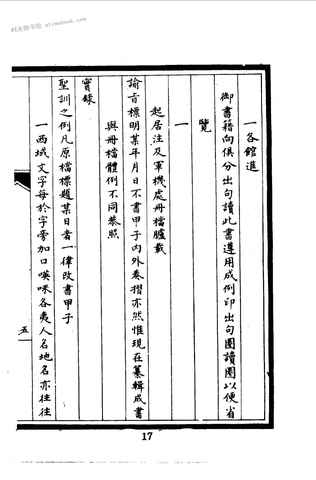 一各館進
御書籍向俱分出句讀此書遵用成例印出句圈讀圈以便省
覽
一
起居注及軍機處冊檔臚載
諭旨標明某年月日不書甲子內外奏摺亦然惟現在纂輯成書
與冊檔體例不同恭照
實錄
聖訓之例凡原檔標題某日者一律改書甲子
一西域文字每於字旁加口嘆咪各夷人名地名亦往往
五
17